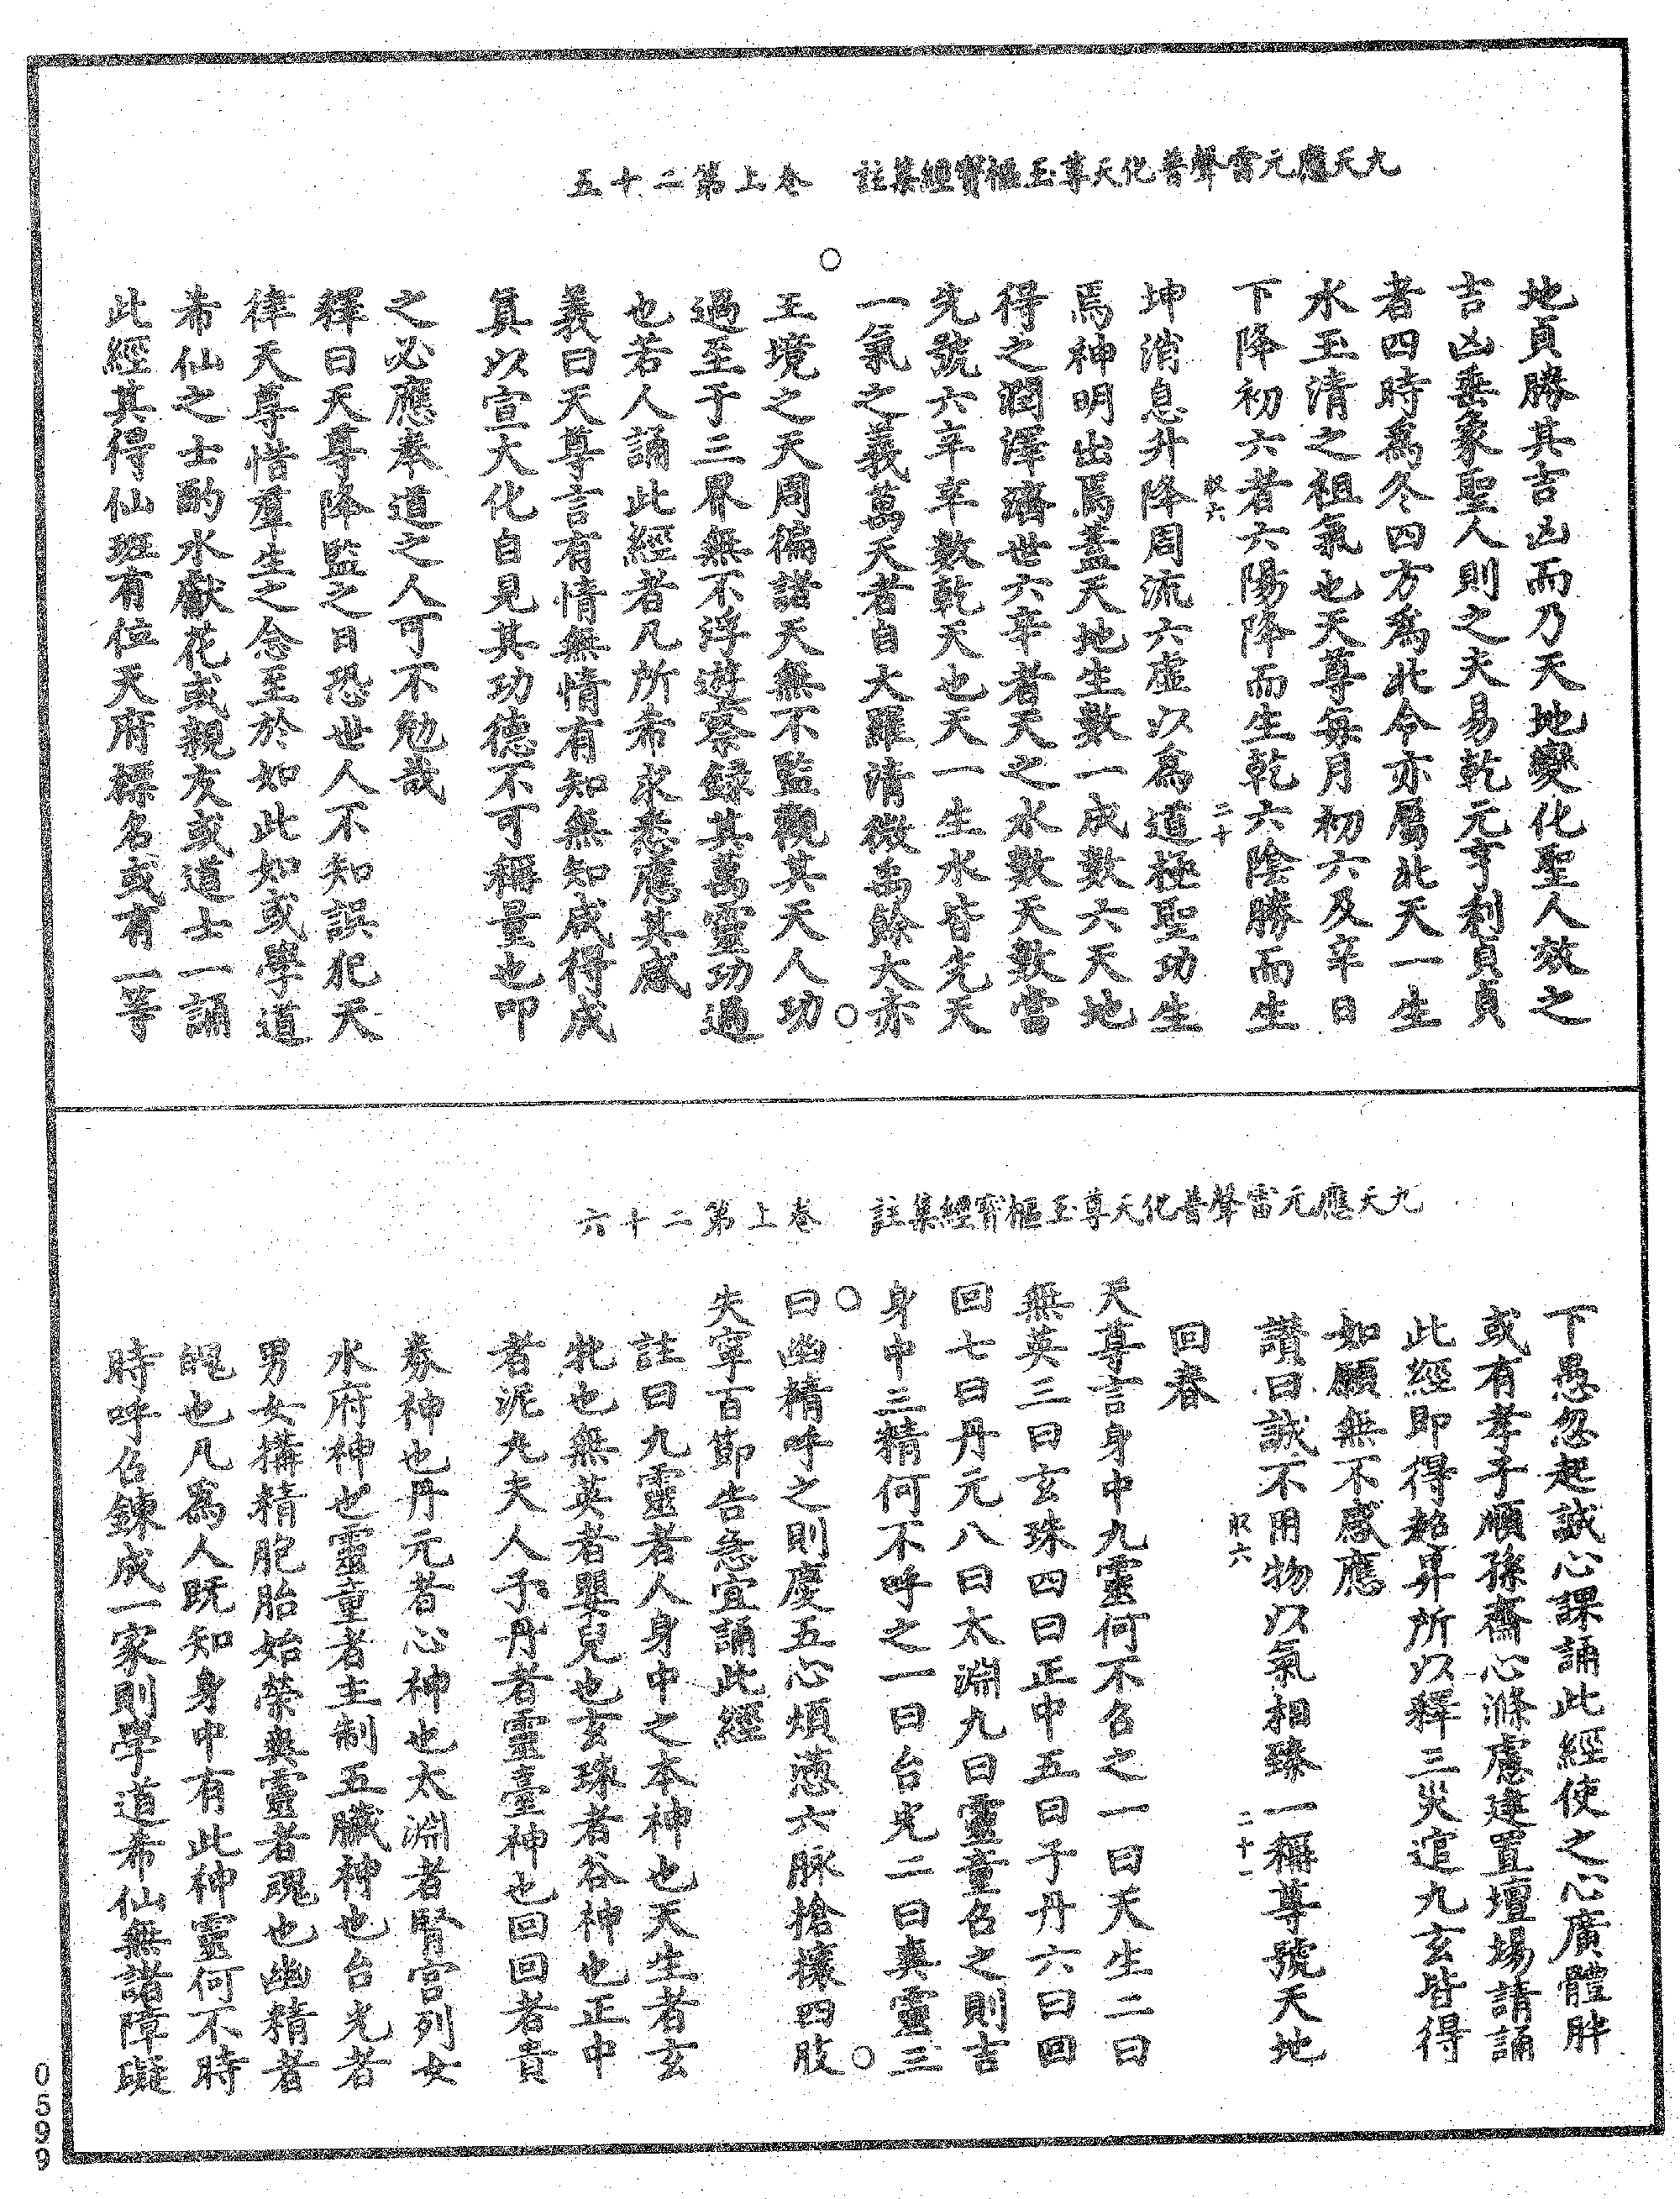 九天應元雷聲普化天尊玉樞寶經集註　卷上第二十五
地貞勝其吉凶而乃天地變化聖人效之
吉凶垂象聖人則之夫易乾元亨利貞貞
者四時為冬四方為北今亦屬北天一生
水玉清之祖氣也天尊每月初六及辛日
下降初六者六陽降而生乾六陰勝而生
馭六　二十
坤消息升降周流六虛以為道極聖功生
焉神明出焉蓋天地生數一成數六天地
得之潤澤濟世六辛者天之水數天數當
先號六辛辛數乾天也天一生水皆先天
一氣之義萬天者自大羅清微禹餘大赤
王境之天周徧諸天無不監觀其天人功
過至于三界無不浮遊察録其萬靈功過
也若人誦此經者凡所希求悉應其感
義曰天尊言有情無情有知無知咸得成
真以宣大化自見其功德不可稱量也叩
之必應奉道之人可不勉哉
釋曰天尊降監之日恐世人不知誤犯天
律天尊惜羣生之念至於如此如或學道
希仙之士酌水獻花或親友或道士一誦
此經其得仙班有位天府標名或有一等
九天應元雷聲普化天尊玉樞寶經集註　卷上第二十六
下愚忽起誠心課誦此經使之心廣體胖
或有孝子順孫齋心滌慮建置壇場請誦
此經即得超昇所以釋三災逭九玄皆得
如願無不感應
讚曰誠不用物以氣相臻一稱尊號天地
馭六　二十一
回春
天尊言身中九靈何不召之一曰天生二曰
無英三曰玄珠四曰正中五曰子丹六曰回
回七曰丹元八曰太淵九曰靈童召之則吉
身中三精何不呼之一曰台光二曰爽靈三
曰幽精呼之則慶五心煩懣六脉搶攘四肢
失寧百節告急宜誦此經
註曰九靈者人身中之本神也天生者玄
牝也無英者嬰兒也玄珠者谷神也正中
者泥丸夫人子丹者靈臺神也回回者賁
券神也丹元者心神也太淵者腎宮列女
水府神也靈童者主制五臟神也台光者
男女搆精胞胎始榮爽靈者魂也幽精者
魄也凡為人既知身中有此神靈何不時
時呼召鍊成一家則學道希仙無諸障礙
0599